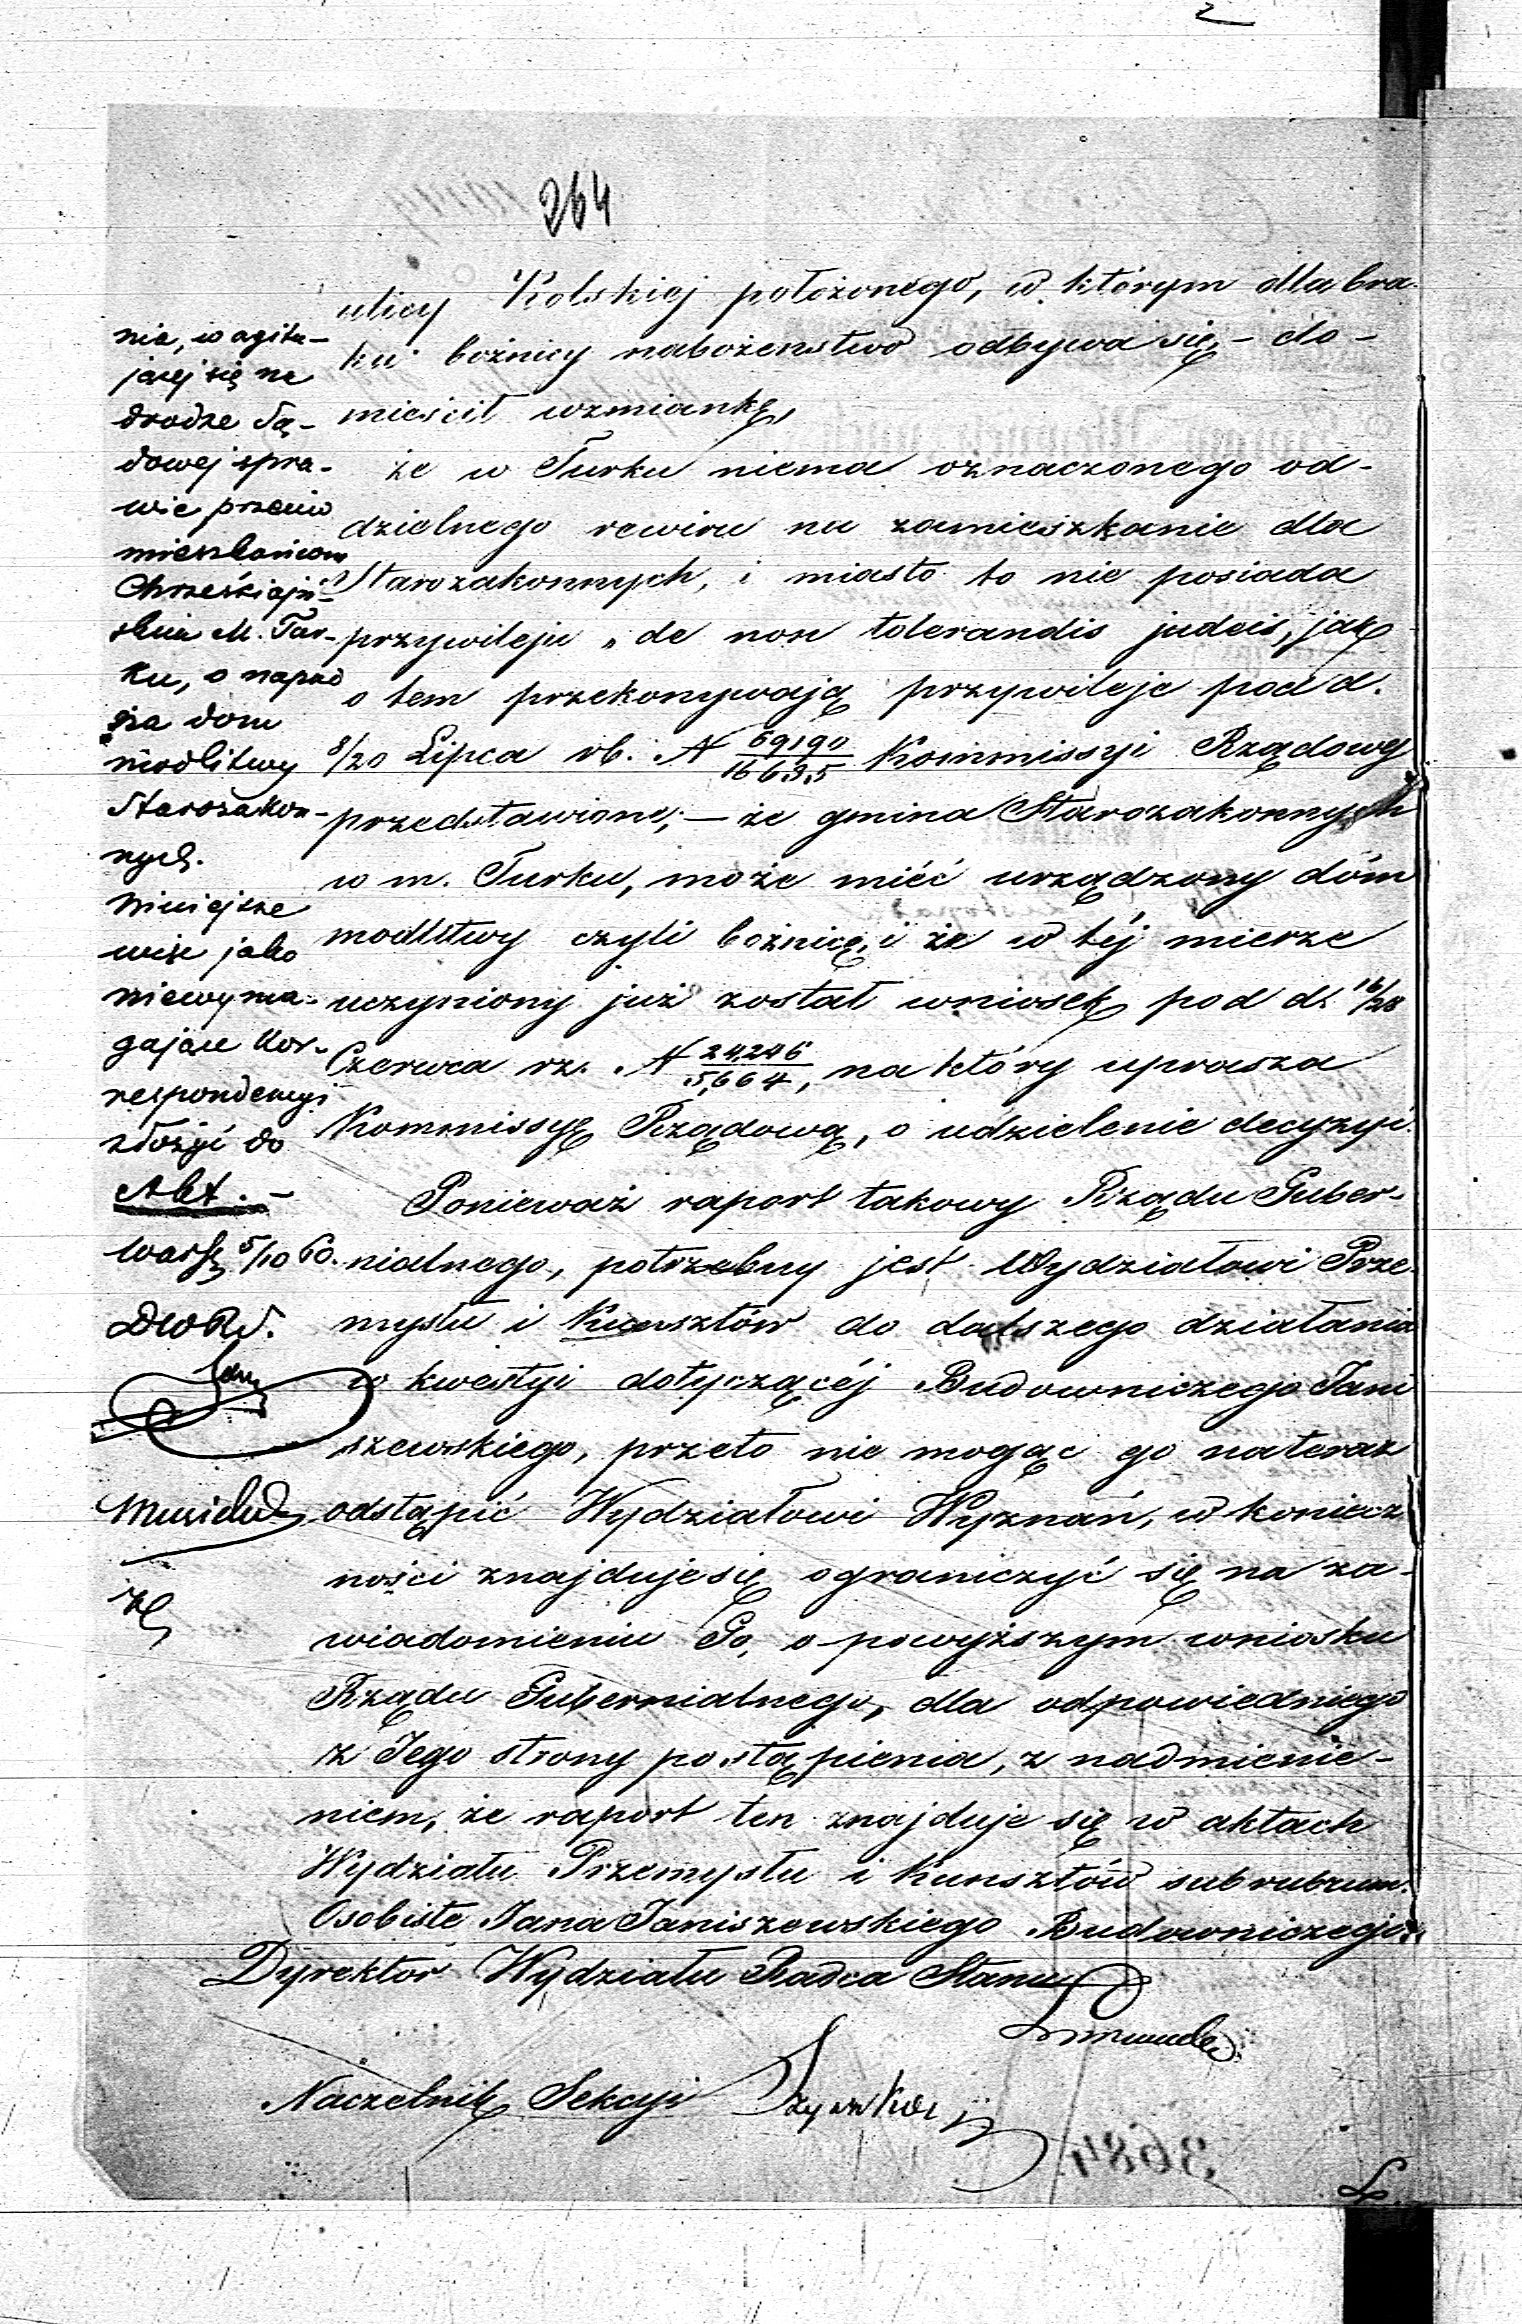 264
ulicy Kolskiej położonego, w którym dla bra-
ku bożnicy nabożeństwo odbywa się, - do-
mieścił wzmiankę,
że w Turku niema oznaczonego od-
dzielnego rewiru na zamieszkanie dla
Starozakonnych, i miasto to nie posiada
przywileju „de non tolerandis judeis, jak
o tem przekonywają przywileje pod d.
8/20 Lipca rb. N 69190/16635 Kommissyi Rządowej
przedstawione; — że gmina Starozakonnych
w m. Turku, może mieć urządzony dóm
modlitwy czyli bożnicę, i że w téj mierze
uczyniony już został wniosek pod d. 16/28
Czerwca rz. N 24,246/5,664, na który uprasza
Kommissyę Rządową, o udzielenie decyzyi.
Ponieważ raport takowy Rządu Guber-
nialnego, potrzebny jest Wydziałowi Prze-
mysłu i Kunsztów do dalszego działania
w kwestyi dotyczącéj Budowniczego Jani
szewskiego, przeto nie mogąc go nateraz
odstąpić Wydziałowi Wyznań, w koniecz
ności znajduje się ograniczyć się na za-
wiadomieniu Go, o powyższym wniosku
Rządu Gubernialnego, dla odpowiedniego
z Jego strony postąpienia, z nadmienie-
niem, że raport ten znajduje się w aktach
Wydziału Przemysłu i Kunsztów sub rubrum.
Osobiste Jana Janiszewskiego Budowniczego.
Dyrektor Wydziału Radca Stanu
Naczelnik Sekcyi
nia, w agitu-
jącej się na
drodze Są-
dowej spra-
wie przeciw
mieszkańcom
Chrześcijań-
skim M. Tur-
ku, o napad
na dom
modlitwy
Starozakon-
nych.
Niniejsze
więc jako
niewyma-
gające kor-
respondencyi
złożyć do
Akt. -
Warsz 5/10 60.
3684